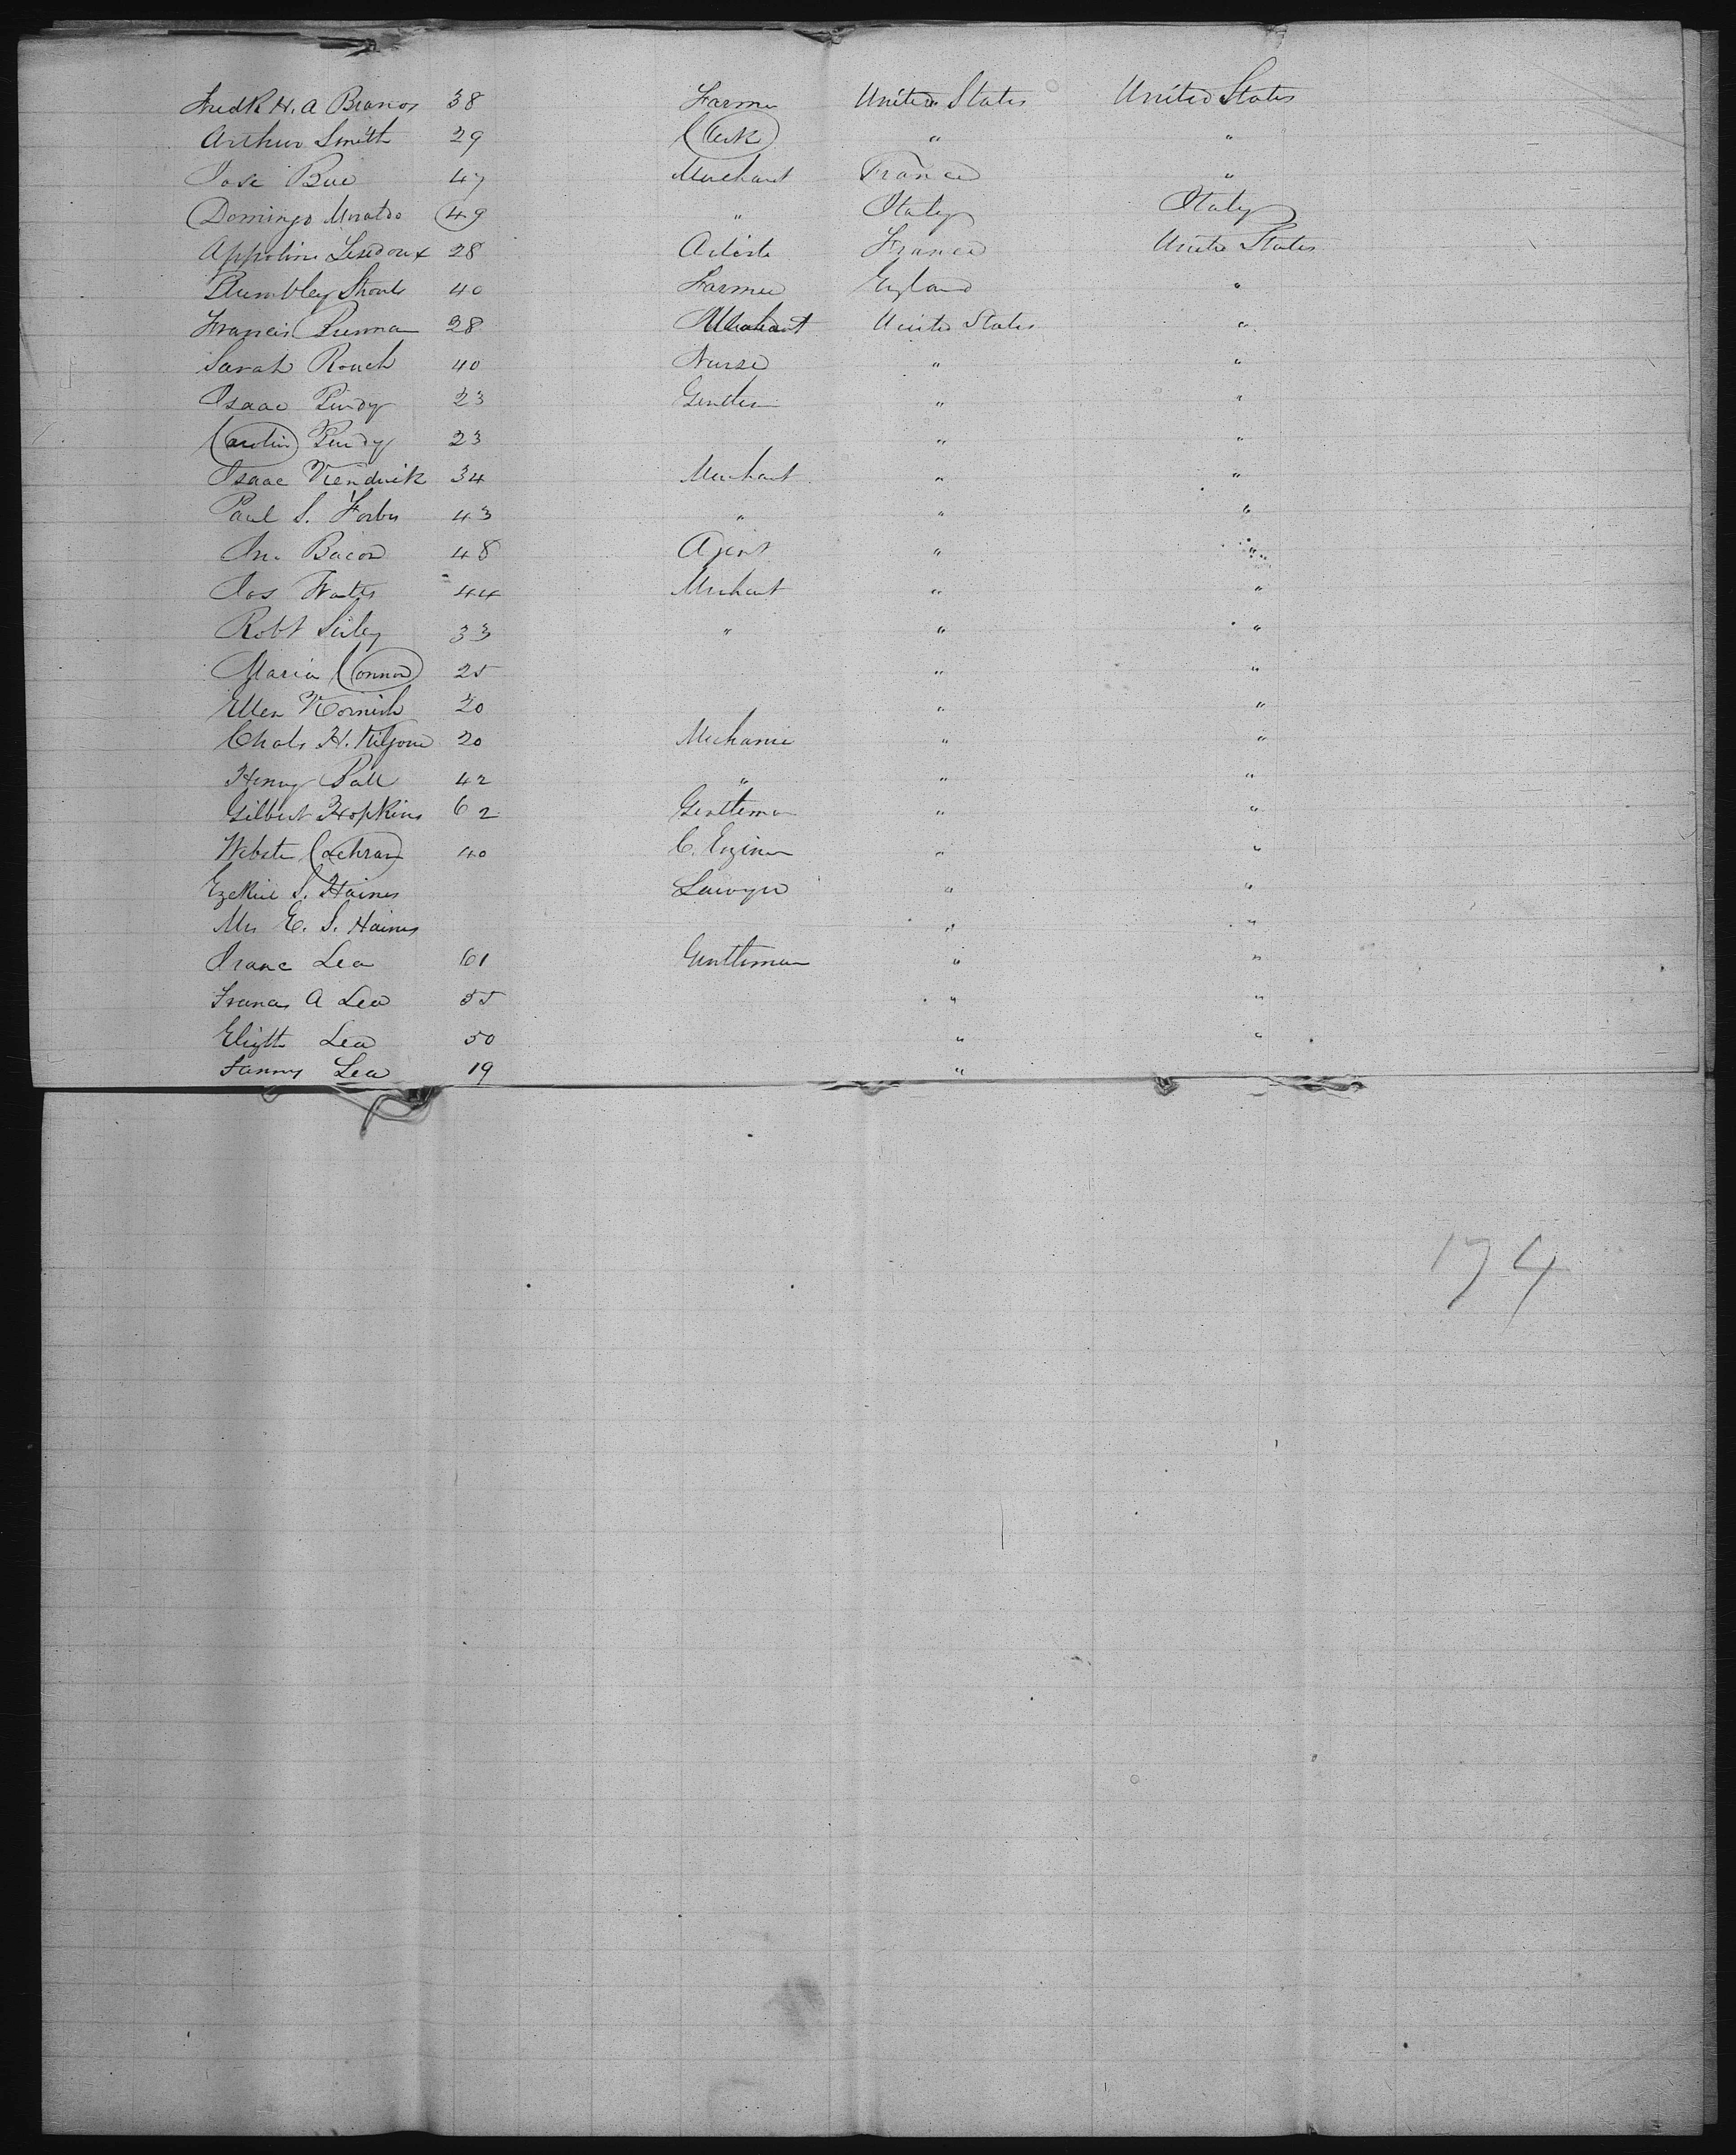 Fredk H. A Branos 38 Farmer United States United States
Arthur Smith 29 Clerk " "
Jose Bue 47 Merchant France "
Domingo 49 " Italy Italy
Appoline 28 Artiste France United States
40 Farmer England "
Francis 28 Merchant United States "
Sarah Rouch 40 Nurse " "
Isaac Purdy 23 Gentlem " "
Carolin Purdy 23 " "
Isaac Kendrick 34 Merchant " "
Paul S. Forbes 43 " " "
Jno. Bacon 48 Agent " "
Jos Watts 44 Merchant " "
Robt 33 " " "
Maria Connor 25 " "
Ellen 20 " "
Chals H. Kilgour 20 Mechanic " "
Henry Ball 42 " " "
Gilbert Hopkins 62 Gentleman " "
Webster Cochran 40 C. Engineer " "
Ezekiel S. Haines Lawyer " "
Mrs E. S. Haines " "
Isaac Lea 61 Gentleman " "
Frances A Lea 55 " "
Elizth Lea 50 " "
Fanny Lea 19 "
174